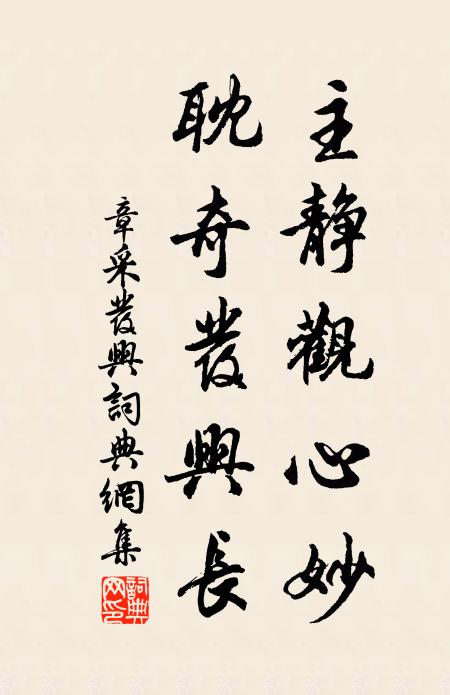 主静觀心妙
耽奇發興長
章采發興詞典網集
詞典
网印